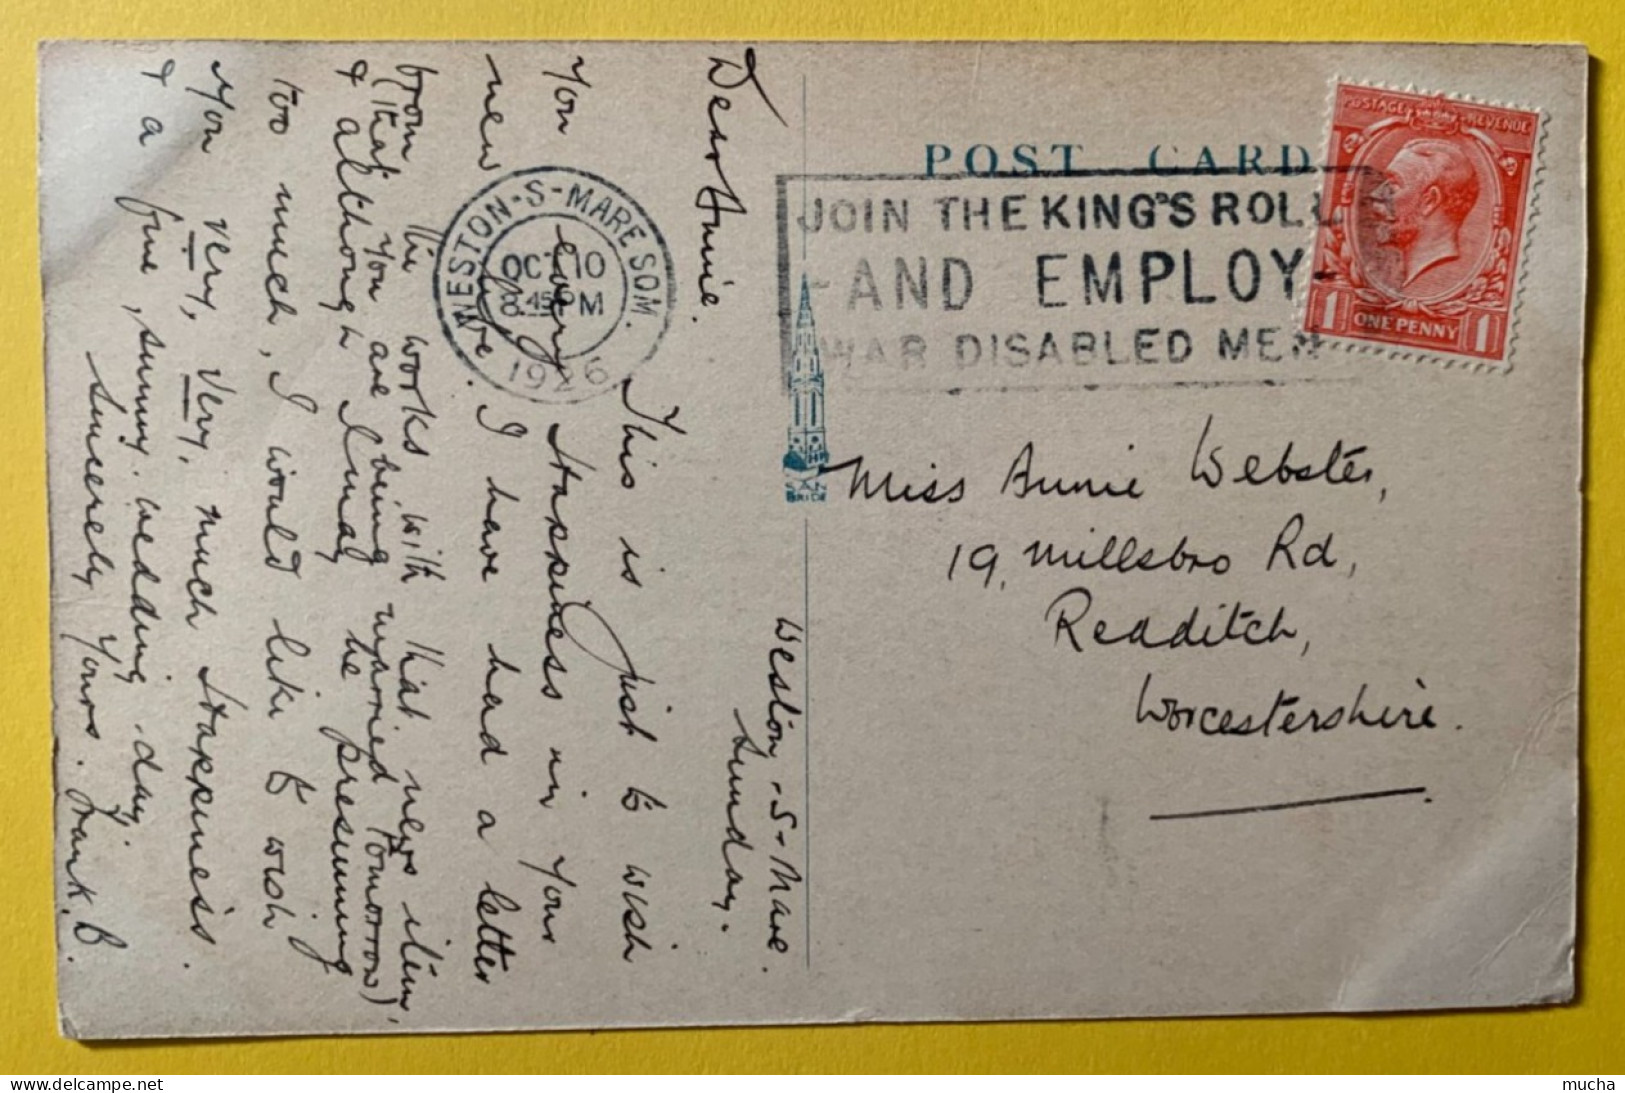 POST CARD
POSTAGE REVENUE
1 ONE PENNY 1
JOIN THE KING'S ROLL
AND EMPLOY
WAR DISABLED MEN
WESTON-S-MARE SOM.
OCT 10
8.45 PM
1926
SAN
BRIDE
Miss Annie Webster,
19, Millsbro Rd,
Redditch,
Worcestershire.
Weston-S-Mare.
Sunday.
Dear Annie.
This is just to wish
you every Happiness in your
new life. I have had a letter
from the works with that news item,
(that you are being married tomorrow)
& although I may be presuming
too much, I would like to wish
you very, very, much Happiness.
& a fine, sunny wedding-day,
Sincerely Yours. Frank. B.
mucha